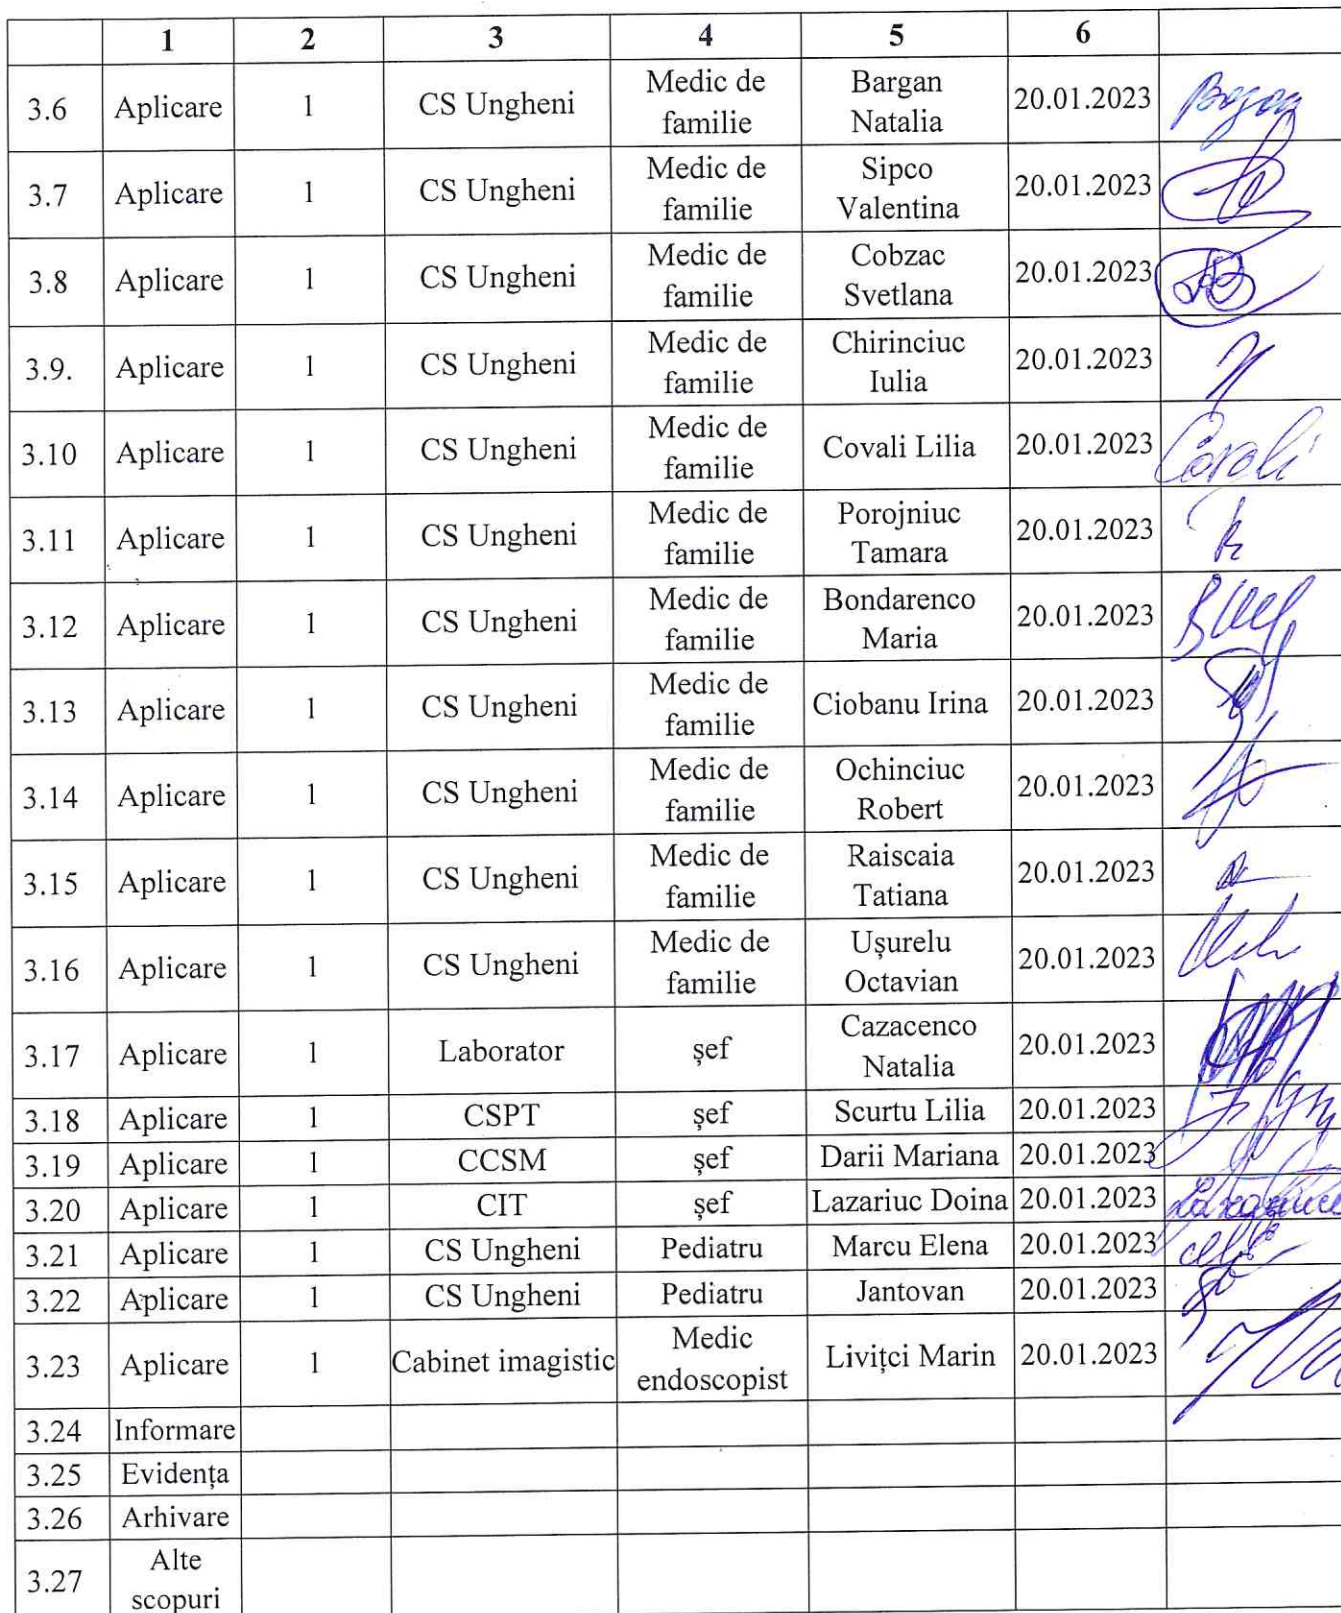 1 2 3 4 5 6
3.6 Aplicare 1 CS Ungheni Medic de familie Bargan Natalia 20.01.2023
3.7 Aplicare 1 CS Ungheni Medic de familie Sipco Valentina 20.01.2023
3.8 Aplicare 1 CS Ungheni Medic de familie Cobzac Svetlana 20.01.2023
3.9. Aplicare 1 CS Ungheni Medic de familie Chirinciuc Iulia 20.01.2023
3.10 Aplicare 1 CS Ungheni Medic de familie Covali Lilia 20.01.2023 Covali
3.11 Aplicare 1 CS Ungheni Medic de familie Porojniuc Tamara 20.01.2023
3.12 Aplicare 1 CS Ungheni Medic de familie Bondarenco Maria 20.01.2023
3.13 Aplicare 1 CS Ungheni Medic de familie Ciobanu Irina 20.01.2023
3.14 Aplicare 1 CS Ungheni Medic de familie Ochinciuc Robert 20.01.2023
3.15 Aplicare 1 CS Ungheni Medic de familie Raiscaia Tatiana 20.01.2023
3.16 Aplicare 1 CS Ungheni Medic de familie Ușurelu Octavian 20.01.2023
3.17 Aplicare 1 Laborator șef Cazacenco Natalia 20.01.2023
3.18 Aplicare 1 CSPT șef Scurtu Lilia 20.01.2023
3.19 Aplicare 1 CCSM șef Darii Mariana 20.01.2023
3.20 Aplicare 1 CIT șef Lazariuc Doina 20.01.2023
3.21 Aplicare 1 CS Ungheni Pediatru Marcu Elena 20.01.2023
3.22 Aplicare 1 CS Ungheni Pediatru Jantovan 20.01.2023
3.23 Aplicare 1 Cabinet imagistic Medic endoscopist Livițci Marin 20.01.2023
3.24 Informare
3.25 Evidența
3.26 Arhivare
3.27 Alte scopuri